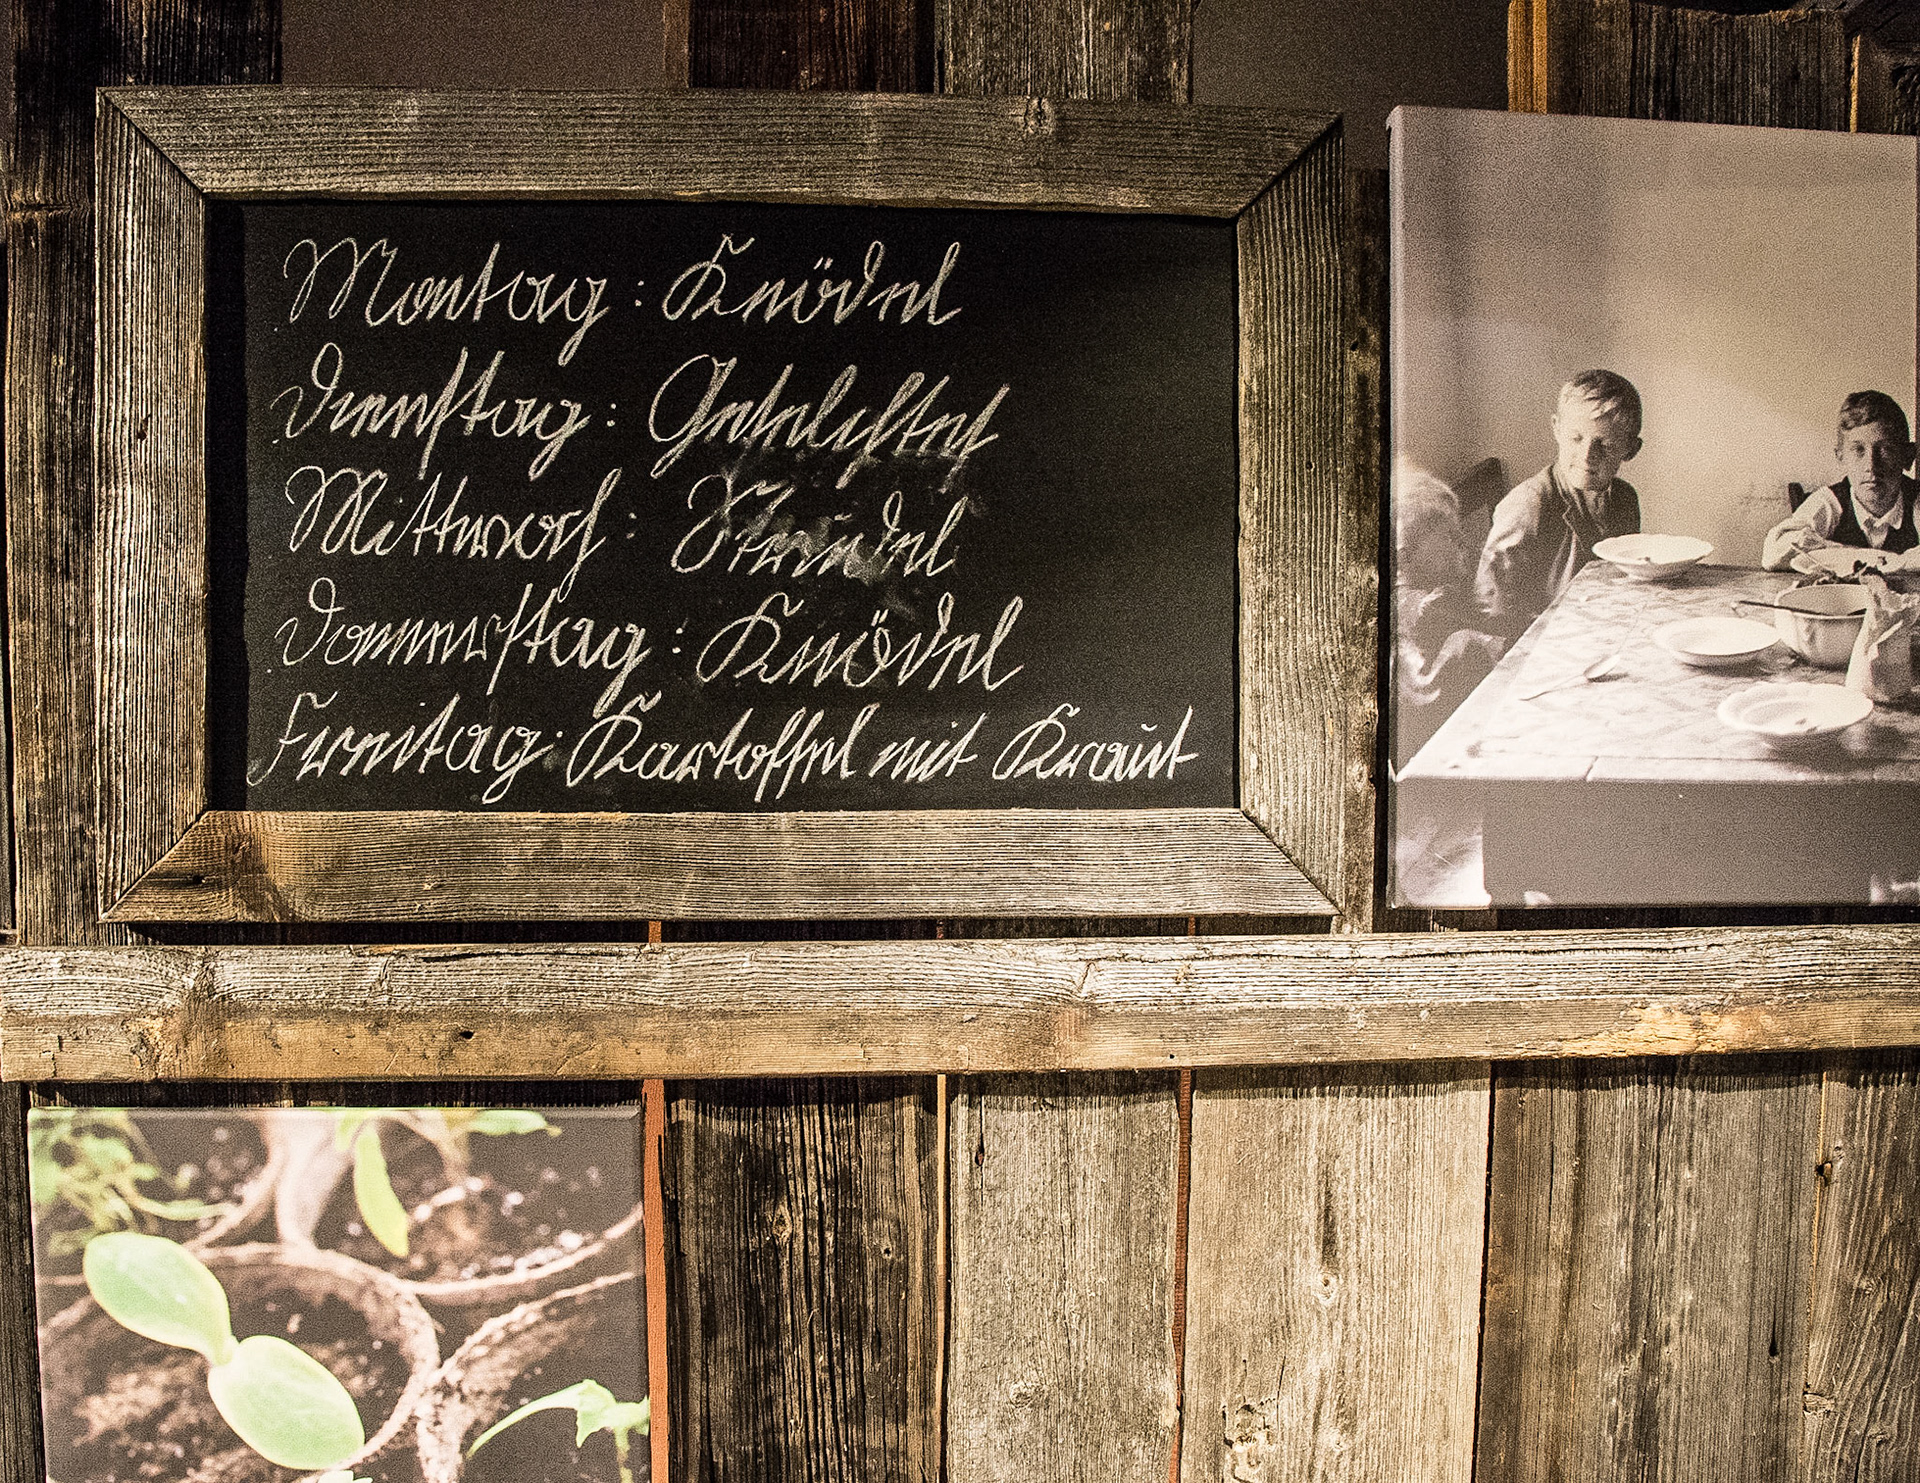 Montag: Knödel
Dienstag: Geselchtes
Mittwoch: Strudel
Donnerstag: Knödel
Freitag: Kartoffel mit Kraut